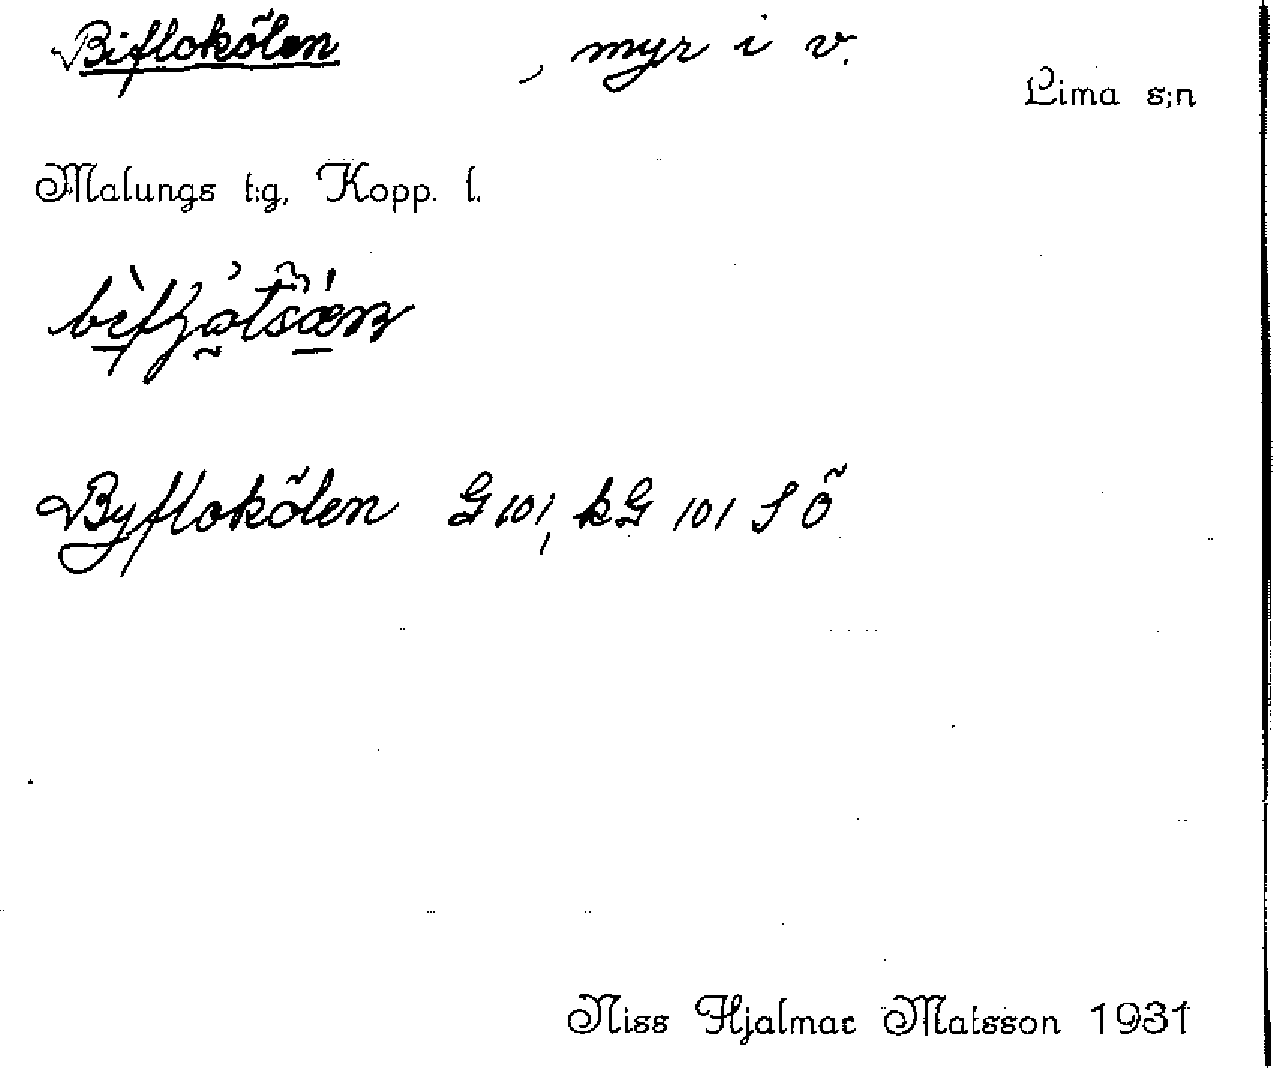 Biflokölen , myr i v.
Lima s:n
Malungs t:g, Kopp. l.
Byflokölen G 101, kG 101 S Ö
Niss Hjalmar Matsson 1931